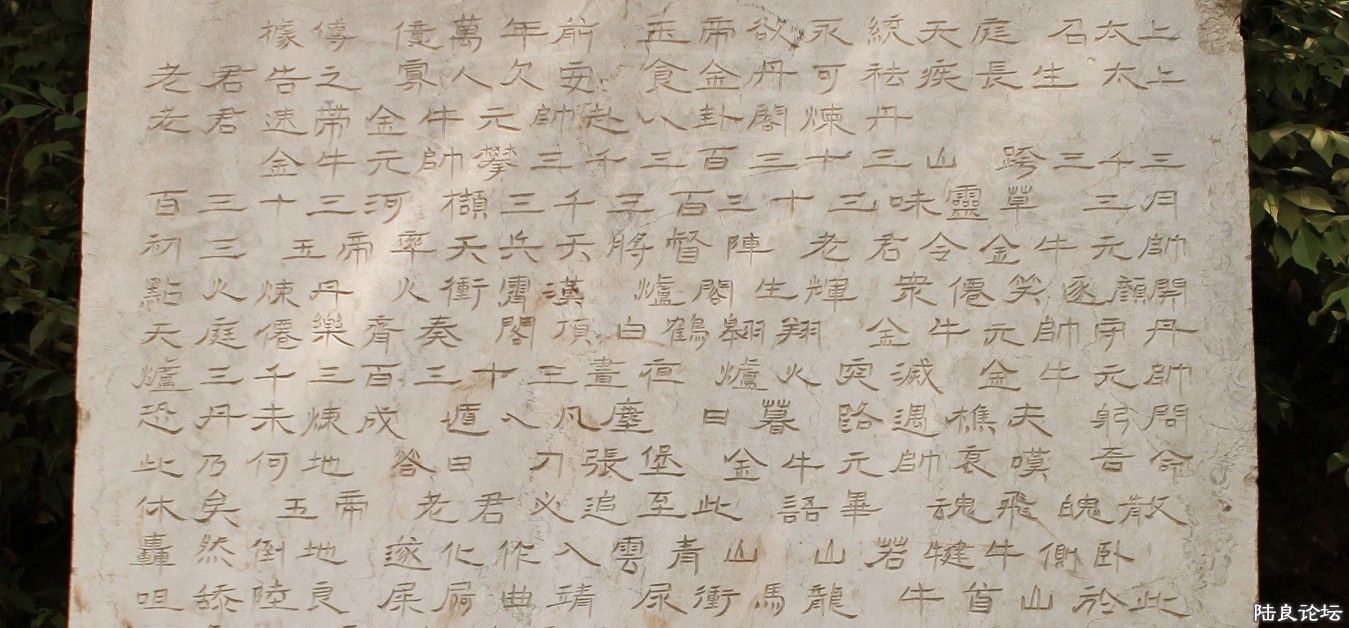 據傳 億萬年前 玉帝欲永統天庭 召太上
老君告之 寡人欠安 食金丹可祛疾長生 太上
老君速帶金牛元帥赴八卦閣煉丹
金牛元帥攀三千三百三十三山 跨三千三
百三十三河 擷三千三百三十三味靈草 三月
初三 玉帝率天兵天將督陣 老君令金牛元帥
點火煉丹 火衝霄漢 爐閣生輝 衆僊笑逐顏開
天庭僊樂齊奏 閣頂白鶴翱翔 金牛元帥守丹
爐三千三百三十三晝夜 爐火突滅 金牛元帥
恐丹未煉成 遁入凡塵 日暮 路遇樵夫 躬問
此乃何地 答曰 刀張堡 金牛元帥哀嘆 吾命
休矣 玉帝 老君必追至此 語畢 魂飛魄散
轟然倒地 遂化作入雲青山 山若犍牛側卧
咀舔陸良 屎屙曲靖 尿衝馬龍 牛首山於此
陆良论坛